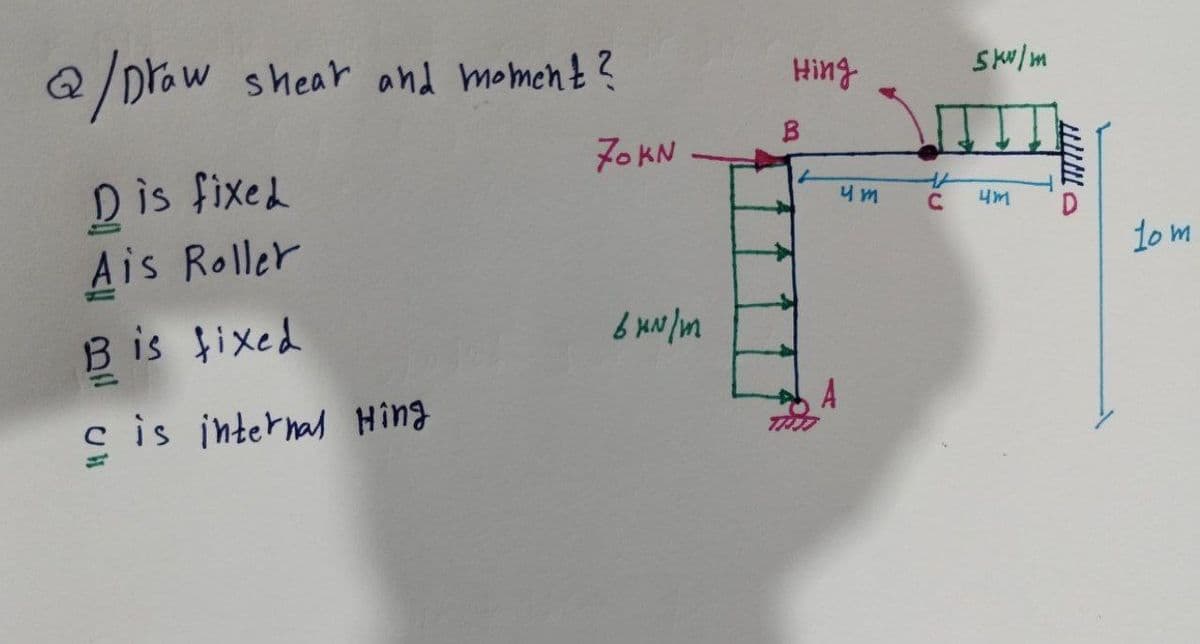 Q/Draw shear and moment?
D is fixed
A is Roller
B is fixed
C is internal Hing
Hing
5 kN/m
70KN
B
4m
C
4m
D
10m
6 KN/m
A